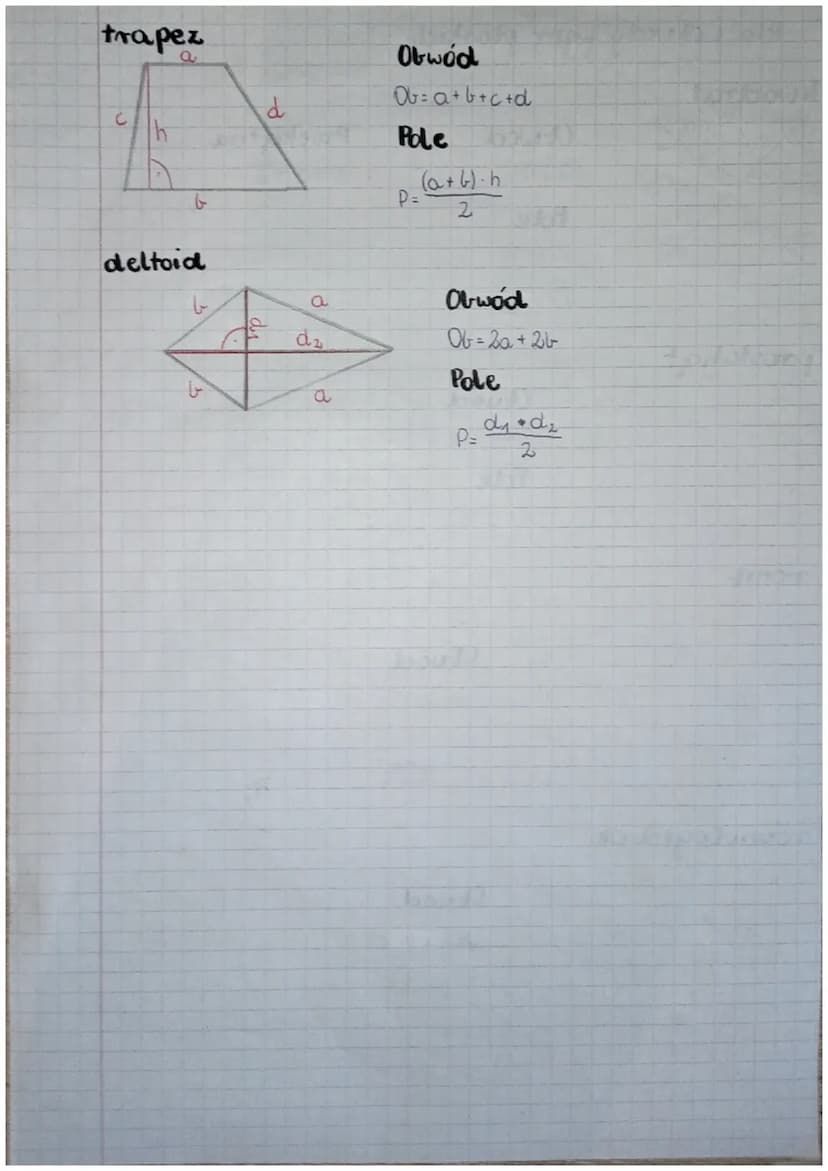 trapez
a
c
h
d
b
Obwód
Ob=a+b+c+d
Pole
P= (a+b)·h
2
deltoid
b
a
d1
d2
b
a
Obwód
Ob=2a+2b
Pole
P= d1·d2
2